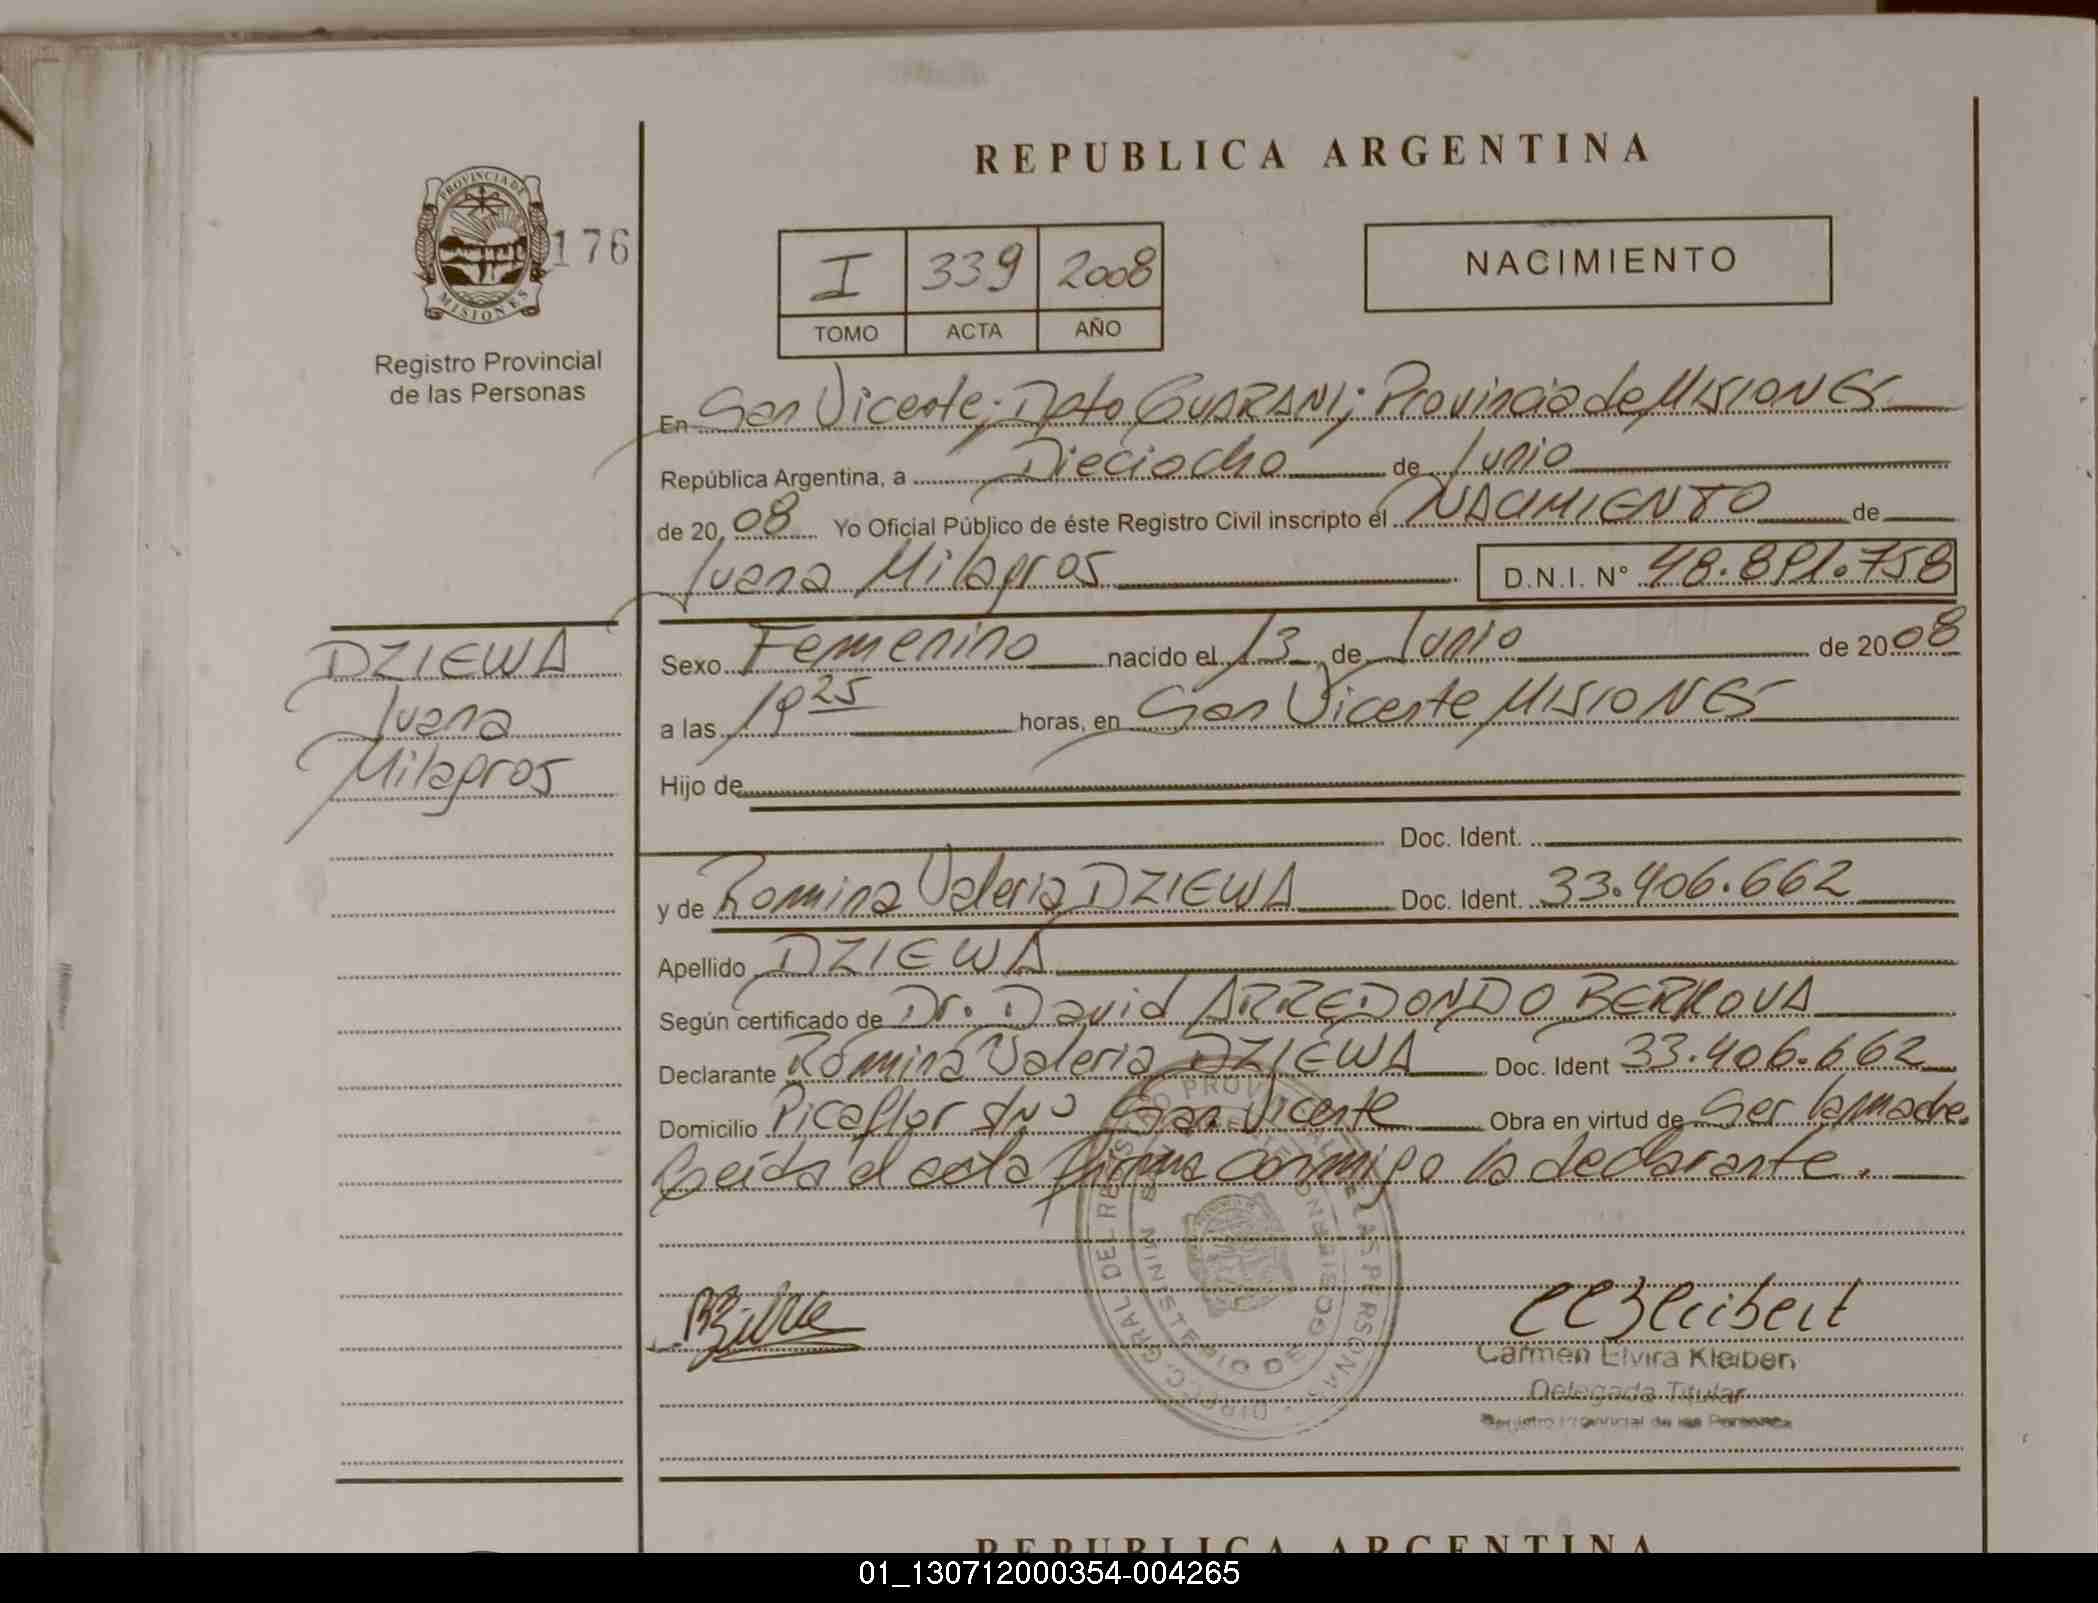 REPUBLICA ARGENTINA
PROVINCIA DE
MISIONES
176
Registro Provincial
de las Personas
I 339 2008
TOMO ACTA AÑO
NACIMIENTO
En San Vicente; Dpto GUARANI; Provincia de MISIONES
República Argentina, a Dieciocho de Junio
de 2008 Yo Oficial Público de éste Registro Civil inscripto el NACIMIENTO de
Juana Milagros D.N.I. N° 48.891.758
DZIEWA
Juana
Milagros
Sexo Femenino nacido el 13 de Junio de 2008
a las 19 25 horas, en San Vicente MISIONES
Hijo de
Doc. Ident.
y de Romina Valeria DZIEWA Doc. Ident. 33.406.662
Apellido DZIEWA
Según certificado de Dr. David ARREDONDO
Declarante Romina Valeria DZIEWA Doc. Ident 33.406.662
Domicilio Picaflor s/nº San Vicente Obra en virtud de Ser la madre.
Leída el acta firma conmigo la declarante.
DIREC. GRAL DEL REGISTRO PROVINCIAL DE LAS PERSONAS
MINISTERIO DE GOBIERNO
Carmen Elvira Kleibert
Delegada Titular
Registro Provincial de las Personas
REPUBLICA ARGENTINA
01_130712000354-004265